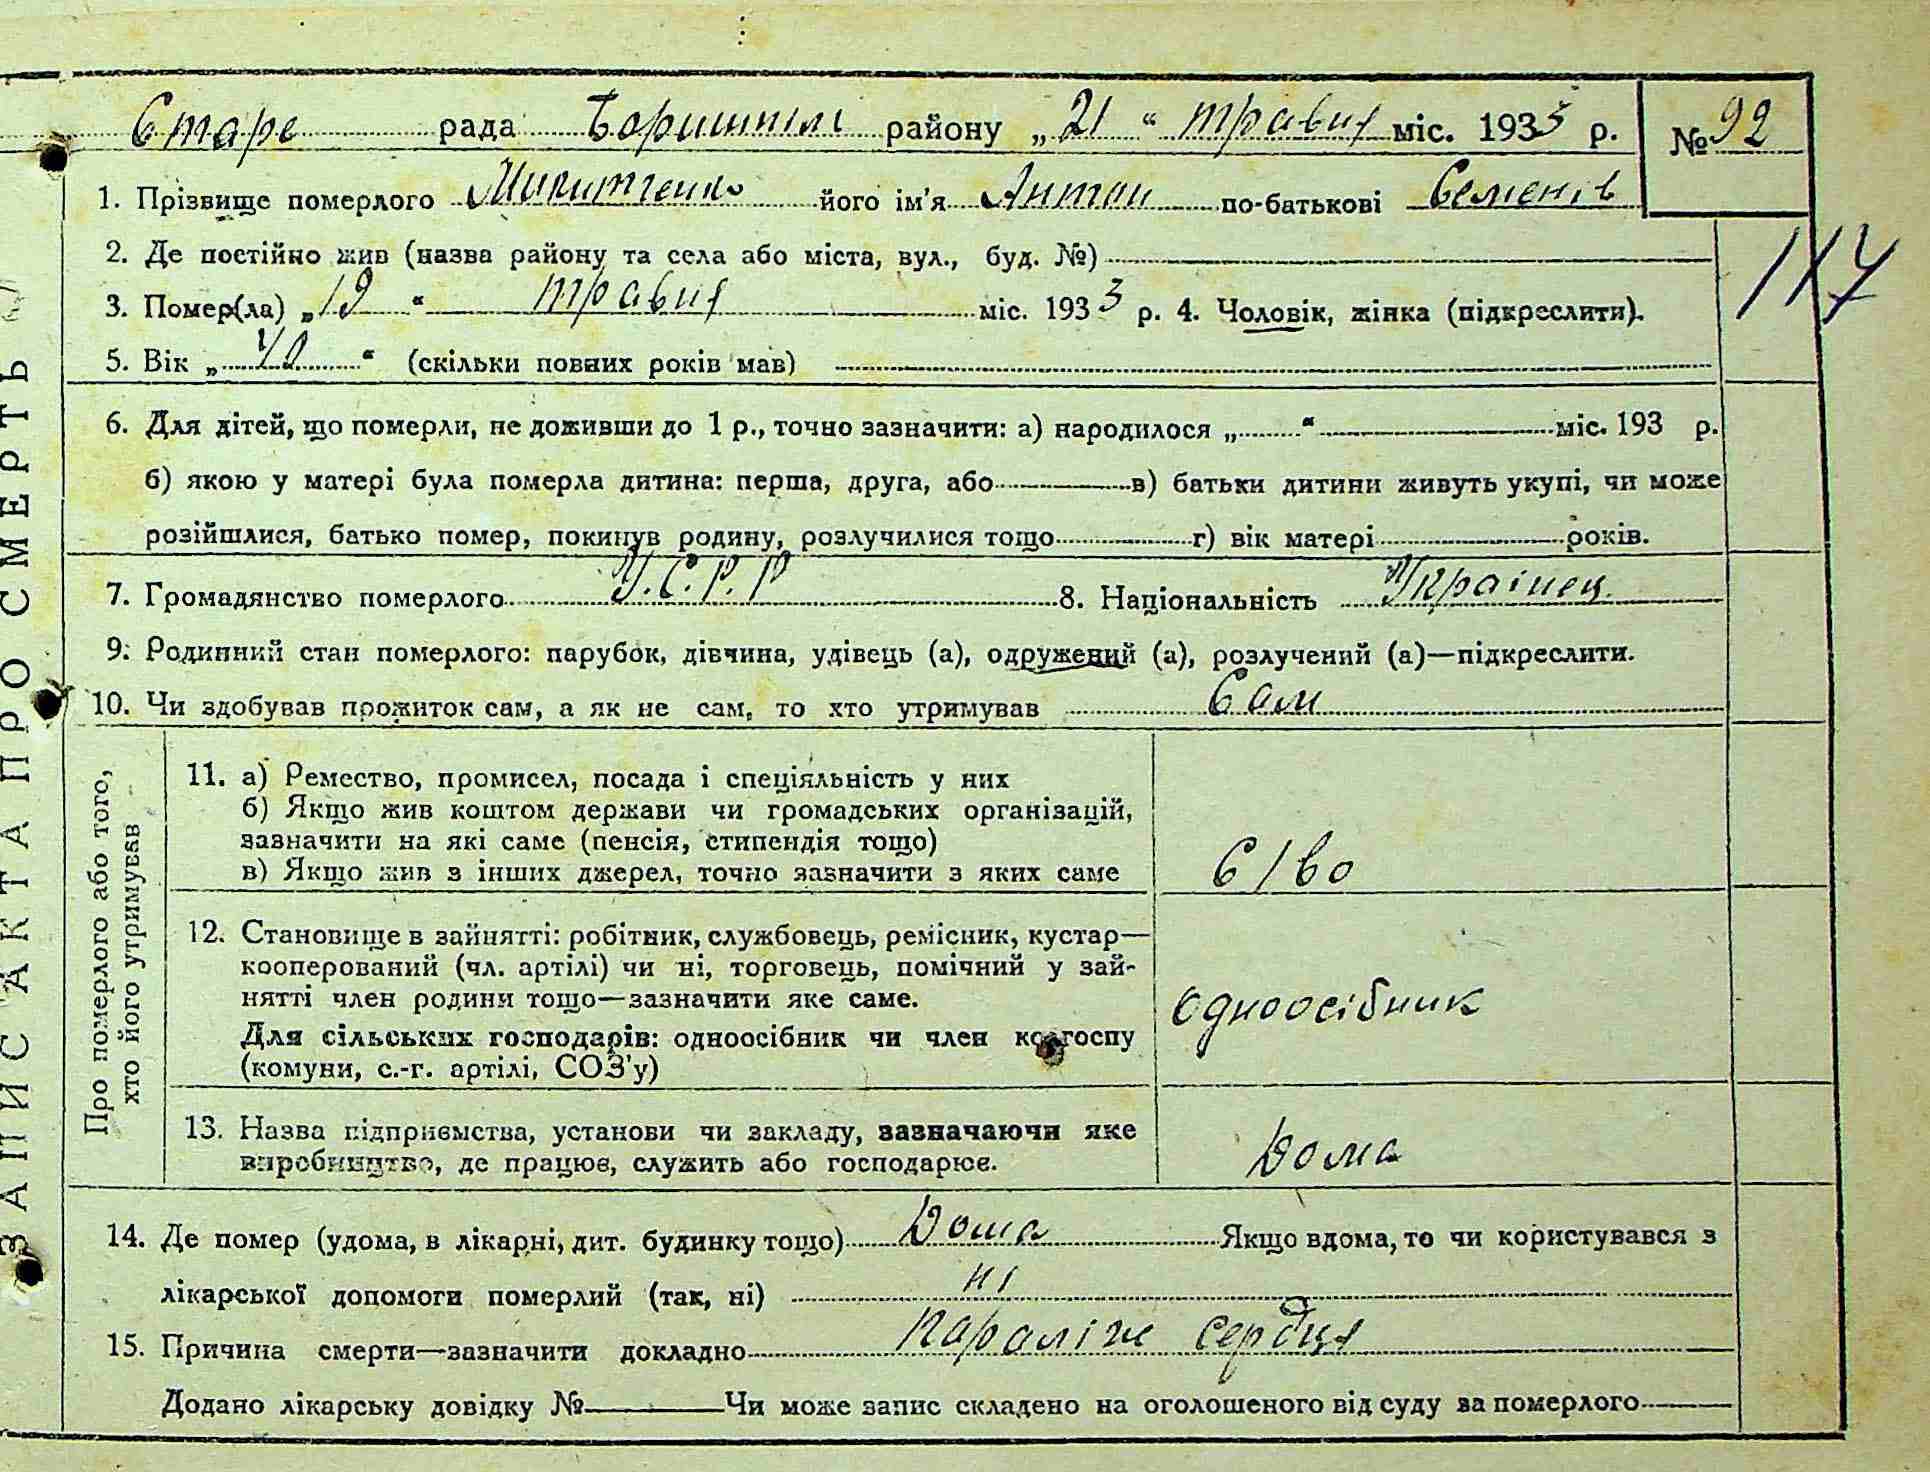 Старе рада Боришпіль району „21“ травня міс. 1933 р. № 92
1. Прізвище померлого Микитченко його ім'я Антон по-батькові Семенів
2. Де постійно жив (назва району та села або міста, вул., буд. №)
117
3. Помер(ла) „19“ травня міс. 1933 р. 4. Чоловік, жінка (підкреслити).
5. Вік „ “ (скільки повних років мав)
6. Для дітей, що померли, не доживши до 1 р., точно зазначити: а) народилося „ “ міс. 193 р.
б) якою у матері була померла дитина: перша, друга, або в) батьки дитини живуть укупі, чи може
розійшлися, батько помер, покинув родину, розлучилися тощо г) вік матері років.
7. Громадянство померлого У.С.Р.Р 8. Національність Українец
9. Родинний стан померлого: парубок, дівчина, удівець (а), одружений (а), розлучений (а)—підкреслити.
10. Чи здобував прожиток сам, а як не сам, то хто утримував Сам
Про померлого або того,
хто його утримував
11. а) Ремество, промисел, посада і спеціяльність у них
б) Якщо жив коштом держави чи громадських організацій,
зазначити на які саме (пенсія, стипендія тощо)
в) Якщо жив з інших джерел, точно зазначити з яких саме
С/во
12. Становище в зайнятті: робітник, службовець, ремісник, кустар—
кооперований (чл. артілі) чи ні, торговець, помічний у зай-
нятті член родини тощо—зазначити яке саме.
Для сільських господарів: одноосібник чи член колгоспу
(комуни, с.-г. артілі, СОЗ'у)
Одноосібник
13. Назва підприємства, установи чи закладу, зазначаючи яке
виробництво, де працює, служить або господарює.
Дома
14. Де помер (удома, в лікарні, дит. будинку тощо) Дома Якщо вдома, то чи користувався з
лікарської допомоги померлий (так, ні) ні
15. Причина смерти—зазначити докладно параліж сердця
Додано лікарську довідку № Чи може запис складено на оголошеного від суду за померлого
ЗАПИС АКТА ПРО СМЕРТЬ